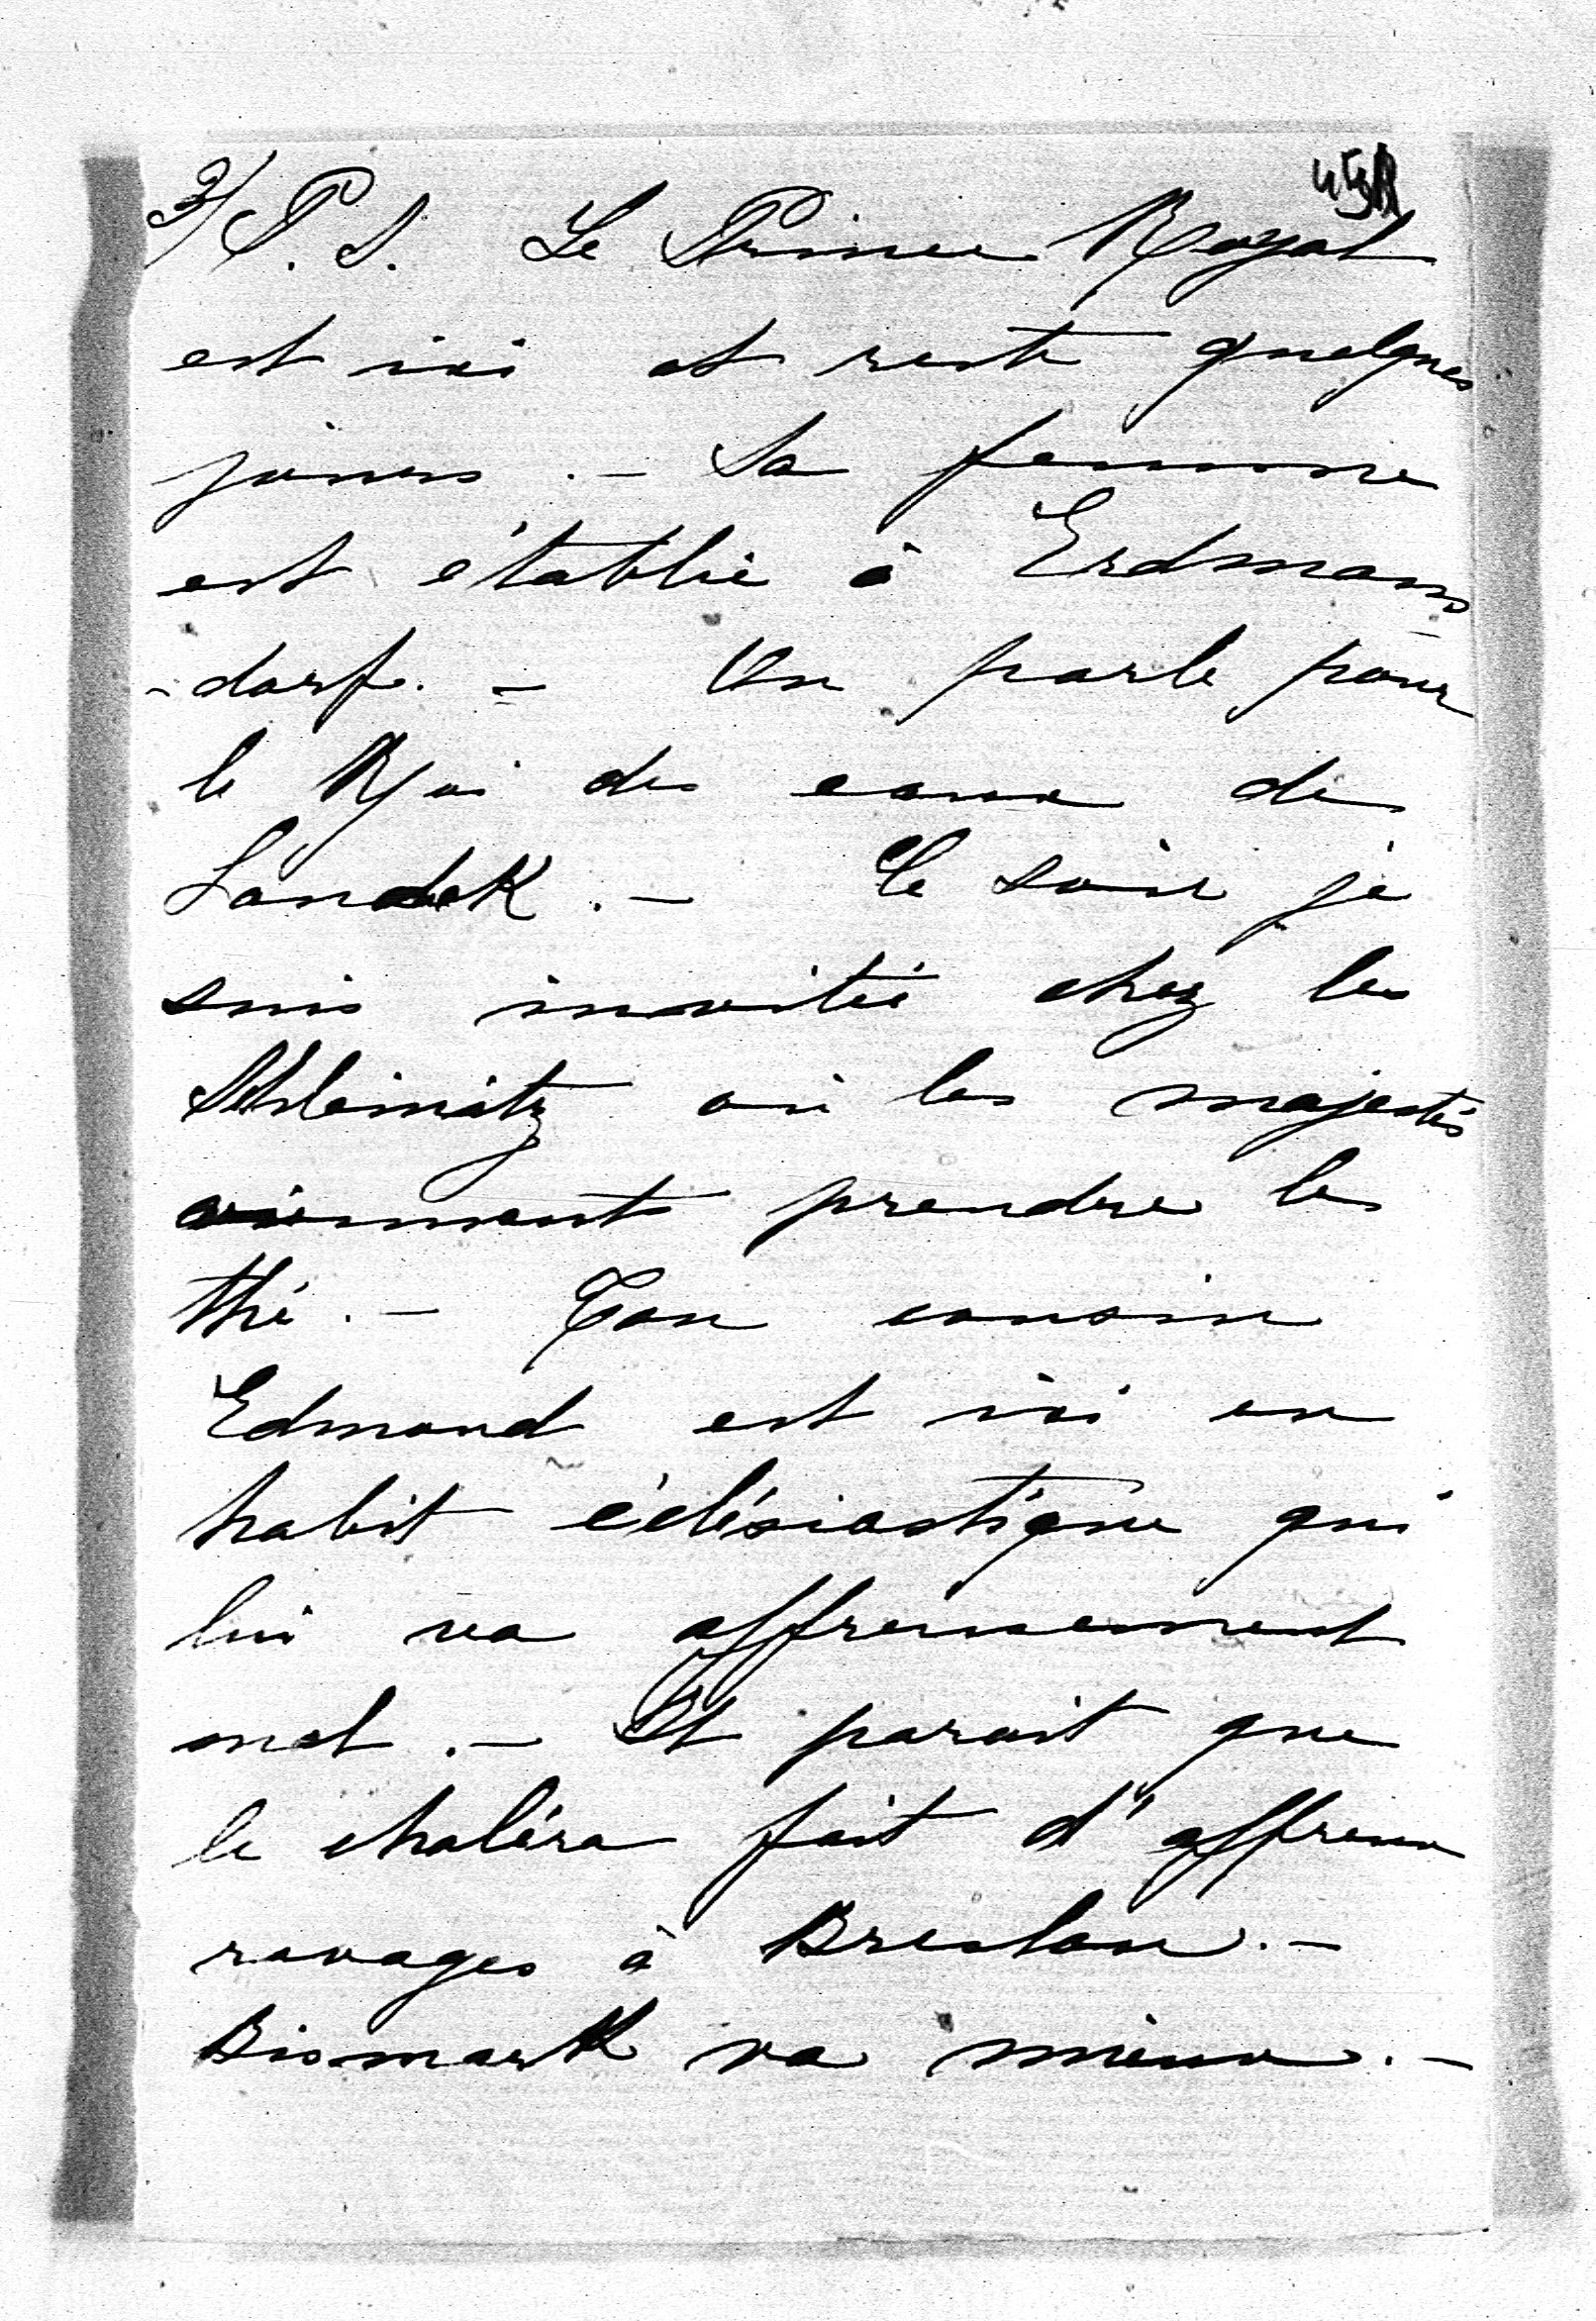 3/ P. S. Le Prince Royal
est ici et reste quelques
jours. – Sa femme
est établie à Erdmans
-dorf. – On parle pour
le Roi des eaux de
Landek. – Ce soir je
suis invitée chez les
Schleinitz où les majestés
viennent prendre le
thé. – Ton cousin
Edmond est ici en
habit éclésiastique qui
lui va affreusement
mal. – Il parait que
le choléra fait d'affreux
ravages à Breslau. –
Bismark va mieux. –